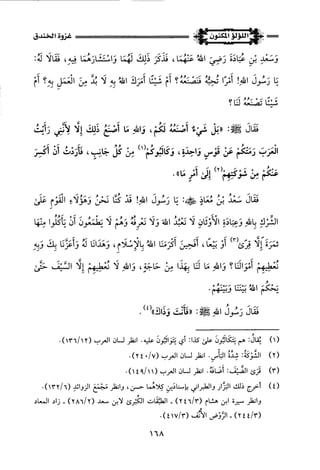 غزوة الخندق
اللؤلؤ المكنون
وَسَعْدِ بْنِ عُبَادَةَ رَضِيَ اللهُ عَنْهُمَا، فَذَكَرَ ذَلِكَ لَهُمَا وَاسْتَشَارَهُمَا فِيهِ، فَقَالَا لَهُ:
يَا رَسُولَ اللهِ! أَمْرًا تُحِبُّهُ فَنَصْنَعُهُ؟ أَمْ شَيْئًا أَمَرَكَ اللهُ بِهِ لَا بُدَّ مِنَ الْعَمَلِ بِهِ؟ أَمْ
شَيْئًا تَصْنَعُهُ لَنَا؟
فَقَالَ ﷺ: «بَلْ شَيْءٌ أَصْنَعُهُ لَكُمْ، وَاللهِ مَا أَصْنَعُ ذَلِكَ إِلَّا لِأَنَّنِي رَأَيْتُ
الْعَرَبَ رَمَتْكُمْ عَنْ قَوْسٍ وَاحِدَةٍ، وَكَالَبُوكُمْ(١) مِنْ كُلِّ جَانِبٍ، فَأَرَدْتُ أَنْ أَكْسِرَ
عَنْكُمْ مِنْ شَوْكَتِهِمْ(٢) إِلَى أَمْرٍ مَا».
فَقَالَ سَعْدُ بْنُ مُعَاذٍ ﷺ: يَا رَسُولَ اللهِ! قَدْ كُنَّا نَحْنُ وَهَؤُلَاءِ الْقَوْمِ عَلَى
الشِّرْكِ بِاللهِ وَعِبَادَةِ الْأَوْثَانِ لَا نَعْبُدُ اللهَ وَلَا نَعْرِفُهُ وَهُمْ لَا يَطْمَعُونَ أَنْ يَأْكُلُوا مِنْهَا
تَمْرَةً إِلَّا قِرًى(٣) أَوْ بَيْعًا، أَفَحِينَ أَكْرَمَنَا اللهُ بِالْإِسْلَامِ، وَهَدَانَا لَهُ وَأَعَزَّنَا بِكَ وَبِهِ
نُعْطِيهِمْ أَمْوَالَنَا؟ وَاللهِ مَا لَنَا بِهَذَا مِنْ حَاجَةٍ، وَاللهِ لَا نُعْطِيهِمْ إِلَّا السَّيْفَ حَتَّى
يَحْكُمَ اللهُ بَيْنَنَا وَبَيْنَهُمْ.
فَقَالَ رَسُولُ اللهِ ﷺ: «فَأَنْتَ وَذَاكَ»(٤).
(١) يُقَالُ: هم يَتَكَالَبُونَ على كذا: أي يَتَوَاثَبُونَ عليه. انظر لسان العرب (١٣٦/١٢).
(٢) الشَّوْكَةُ: شِدَّةُ البَأْسِ. انظر لسان العرب (٢٤٠/٧).
(٣) قِرَى الضَّيْفَ: أضَافَهُ. انظر لسان العرب (١٤٩/١١).
(٤) أخرج ذلك البزَّار والطبراني بإسنادَيْنِ كِلاهُمَا حسن، وانظر مَجْمَع الزوائد (١٣٢/٦)
وانظر سيرة ابن هشام (٢٤٦/٣) ـ الطبقات الكُبْرَى لابن سعد (٢٨٦/٢) ـ زاد المعاد
(٢٤٤/٣) ـ الرَّوْض الأُنُف (٤١٧/٣).
١٦٨